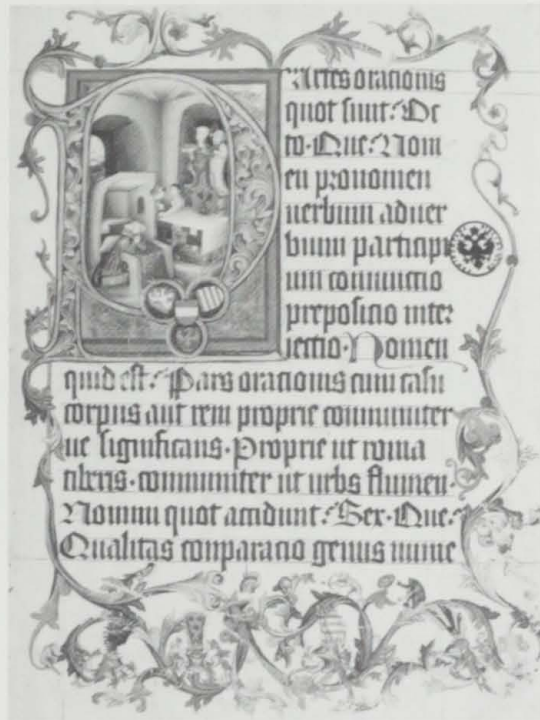 Partes orationis
quot sunt. Oc
to. Que. Nom
en pronomen
uerbum aduer
bium participi
um coniunctio
prepositio inter
iectio. Nomen
quid est. Pars orationis cum casu
corpus aut rem proprie communiter
ue significans. Proprie ut roma
tiberis. communiter ut urbs flumen.
Nomini quot accidunt. Sex. Que.
Qualitas conparacio genus nume